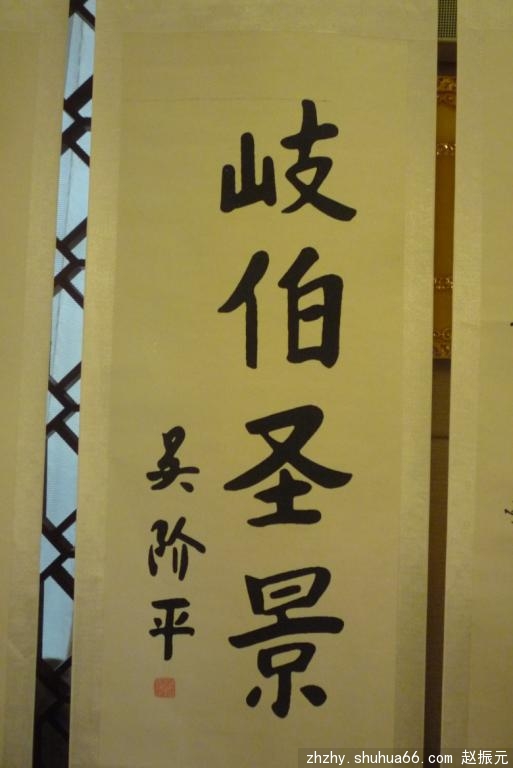 岐伯圣景
吴阶平
zhzhy.shuhua66.com 赵振元